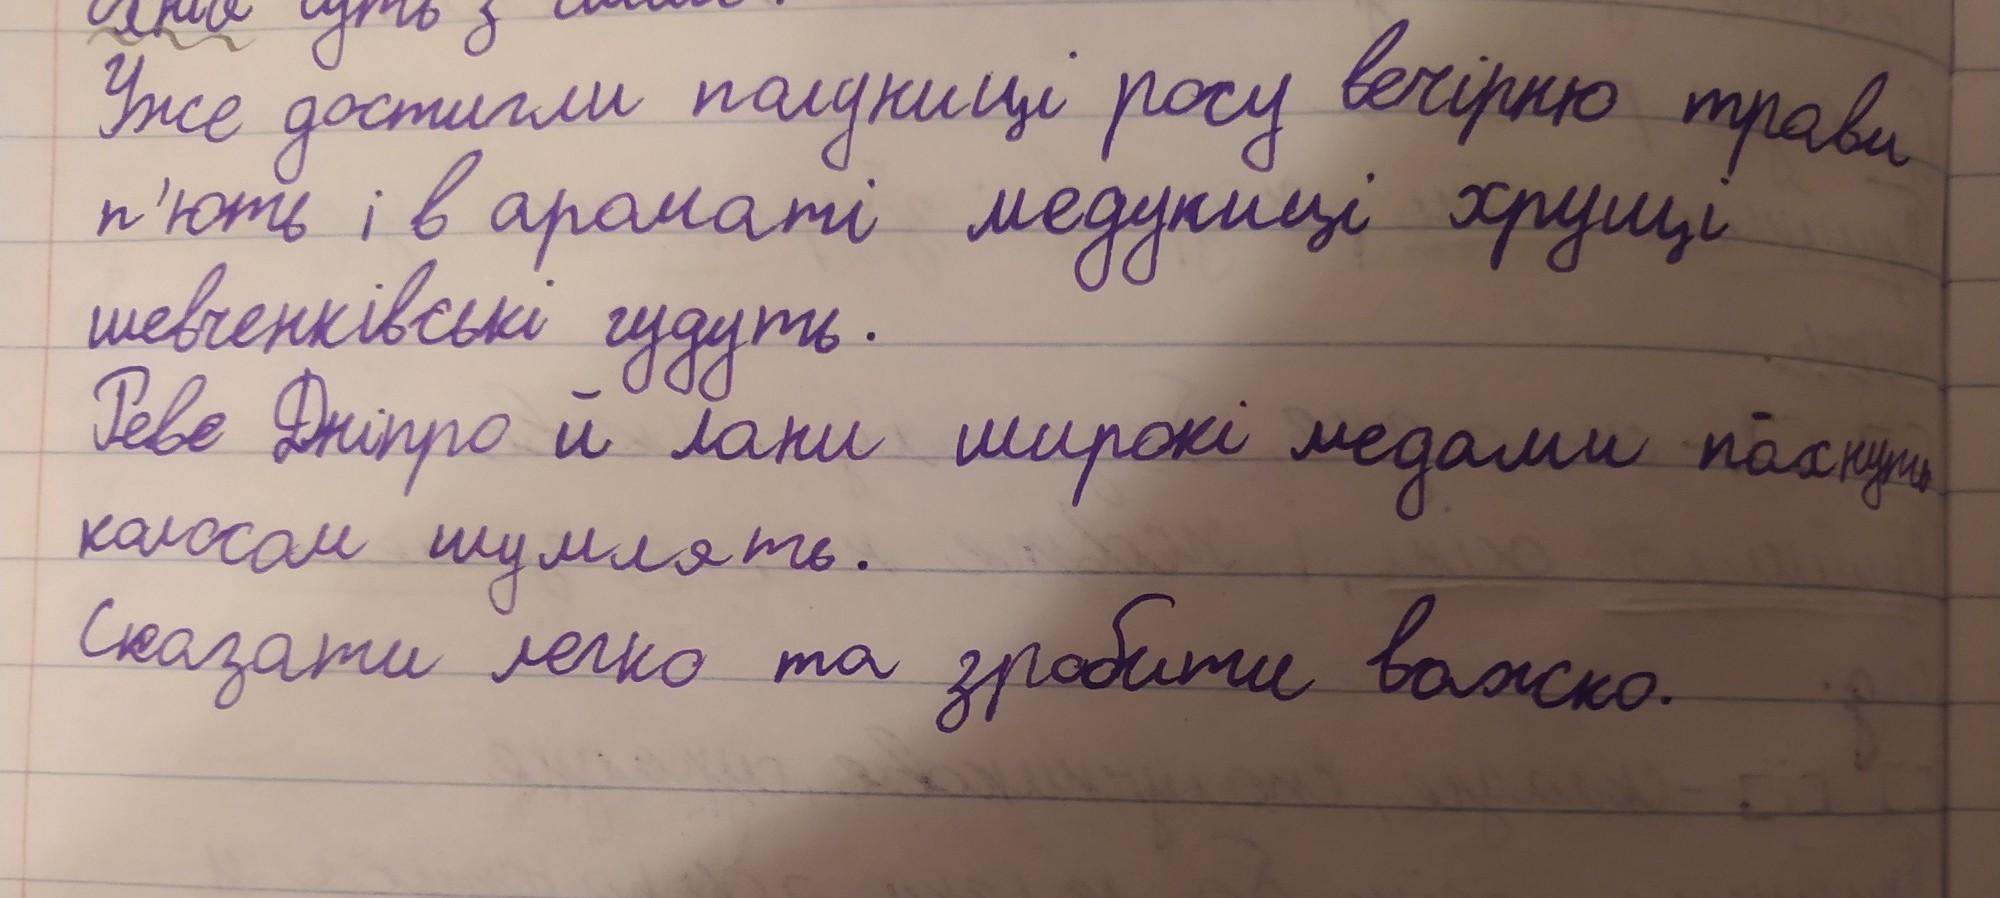 чуть з
Уже достигли полуниці росу вечірню трави
п'ють і в ароматі медуниці хрущі
шевченківські гудуть.
Реве Дніпро й лани широкі медами пахнуть
колосом шумлять.
Сказати легко та зробити важко.